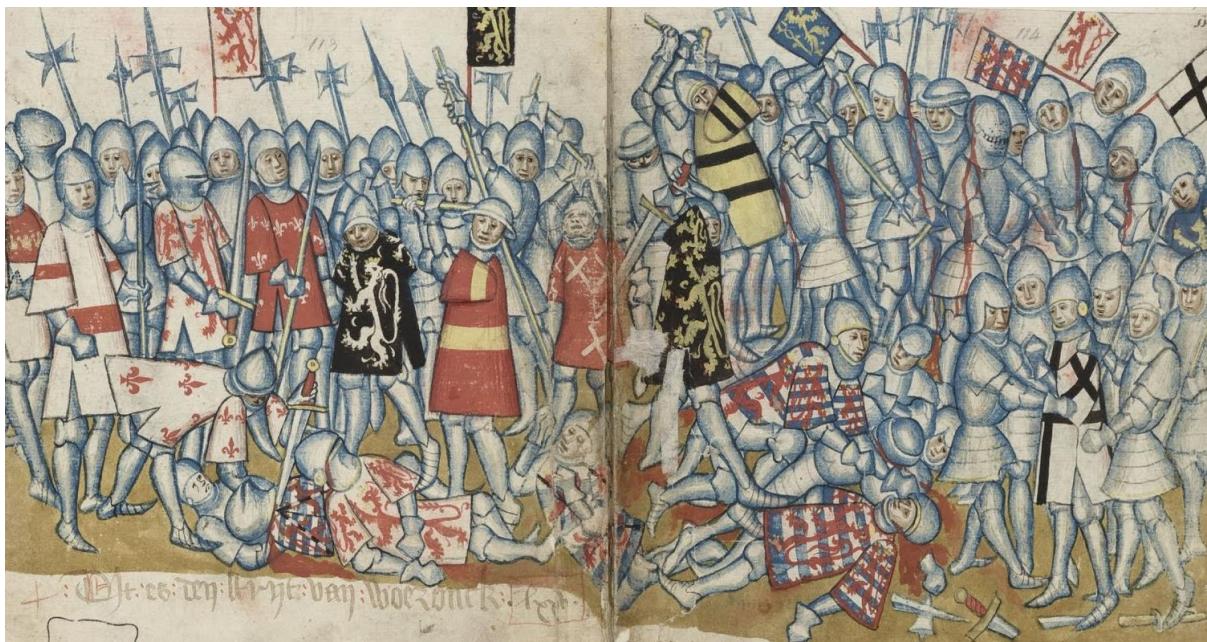 113
114
: Dit : es : den : strijt : van : woeronck :